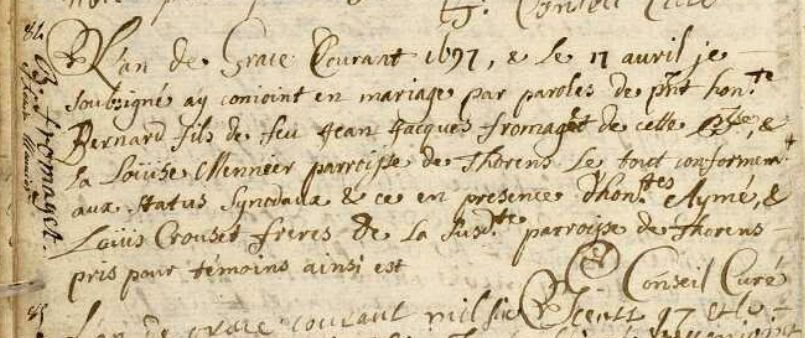 84
B. fromaget
L'an de Grace Courant 1697, & le 17 avril je
soubsigné ay conioint en mariage par paroles de pnt hon.te
Bernard fils de feu Jean Jacques fromaget de cette psse, &
la Loüise Mennier parroisse de Thorens le tout conformem.t
aux statuts synodaux & ce en presence d'hon.tes Aymé, &
Loüis Crouset freres de la susd.te parroisse de Thorens
pris pour témoins ainsi est
Conseil Curé
85
L'an de grace courant mil six cents 97 et le